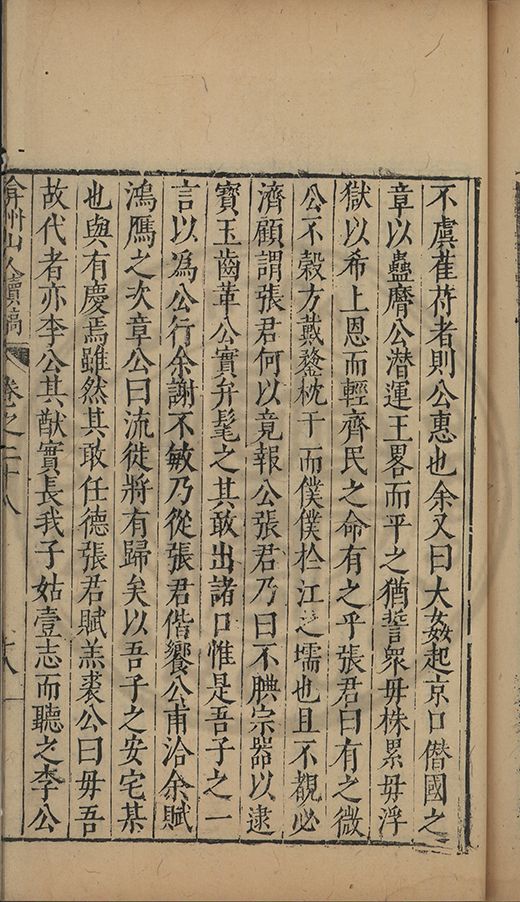 不虞萑苻者則公惠也余又曰大姦起京口僭國之
章以蠱膺公潛運王畧而平之猶誓衆毋株累毋浮
獄以希上恩而輕齊民之命有之乎張君曰有之微
公不穀方戴鍪枕干而僕僕於江之壖也且不覩必
濟顧謂張君何以竟報公張君乃曰不腆宗器以逮
寳玉齒革公實弁髦之其敢出諸口惟是吾子之一
言以爲公行余謝不敏乃從張君偕饗公甫洽余賦
鴻鴈之次章公曰流徙將有歸矣以吾子之安宅某
也與有慶焉雖然其敢任德張君賦羔裘公曰毋吾
故代者亦李公其猷實長我子姑壹志而聽之李公
弇州山人續稿 卷之二十八